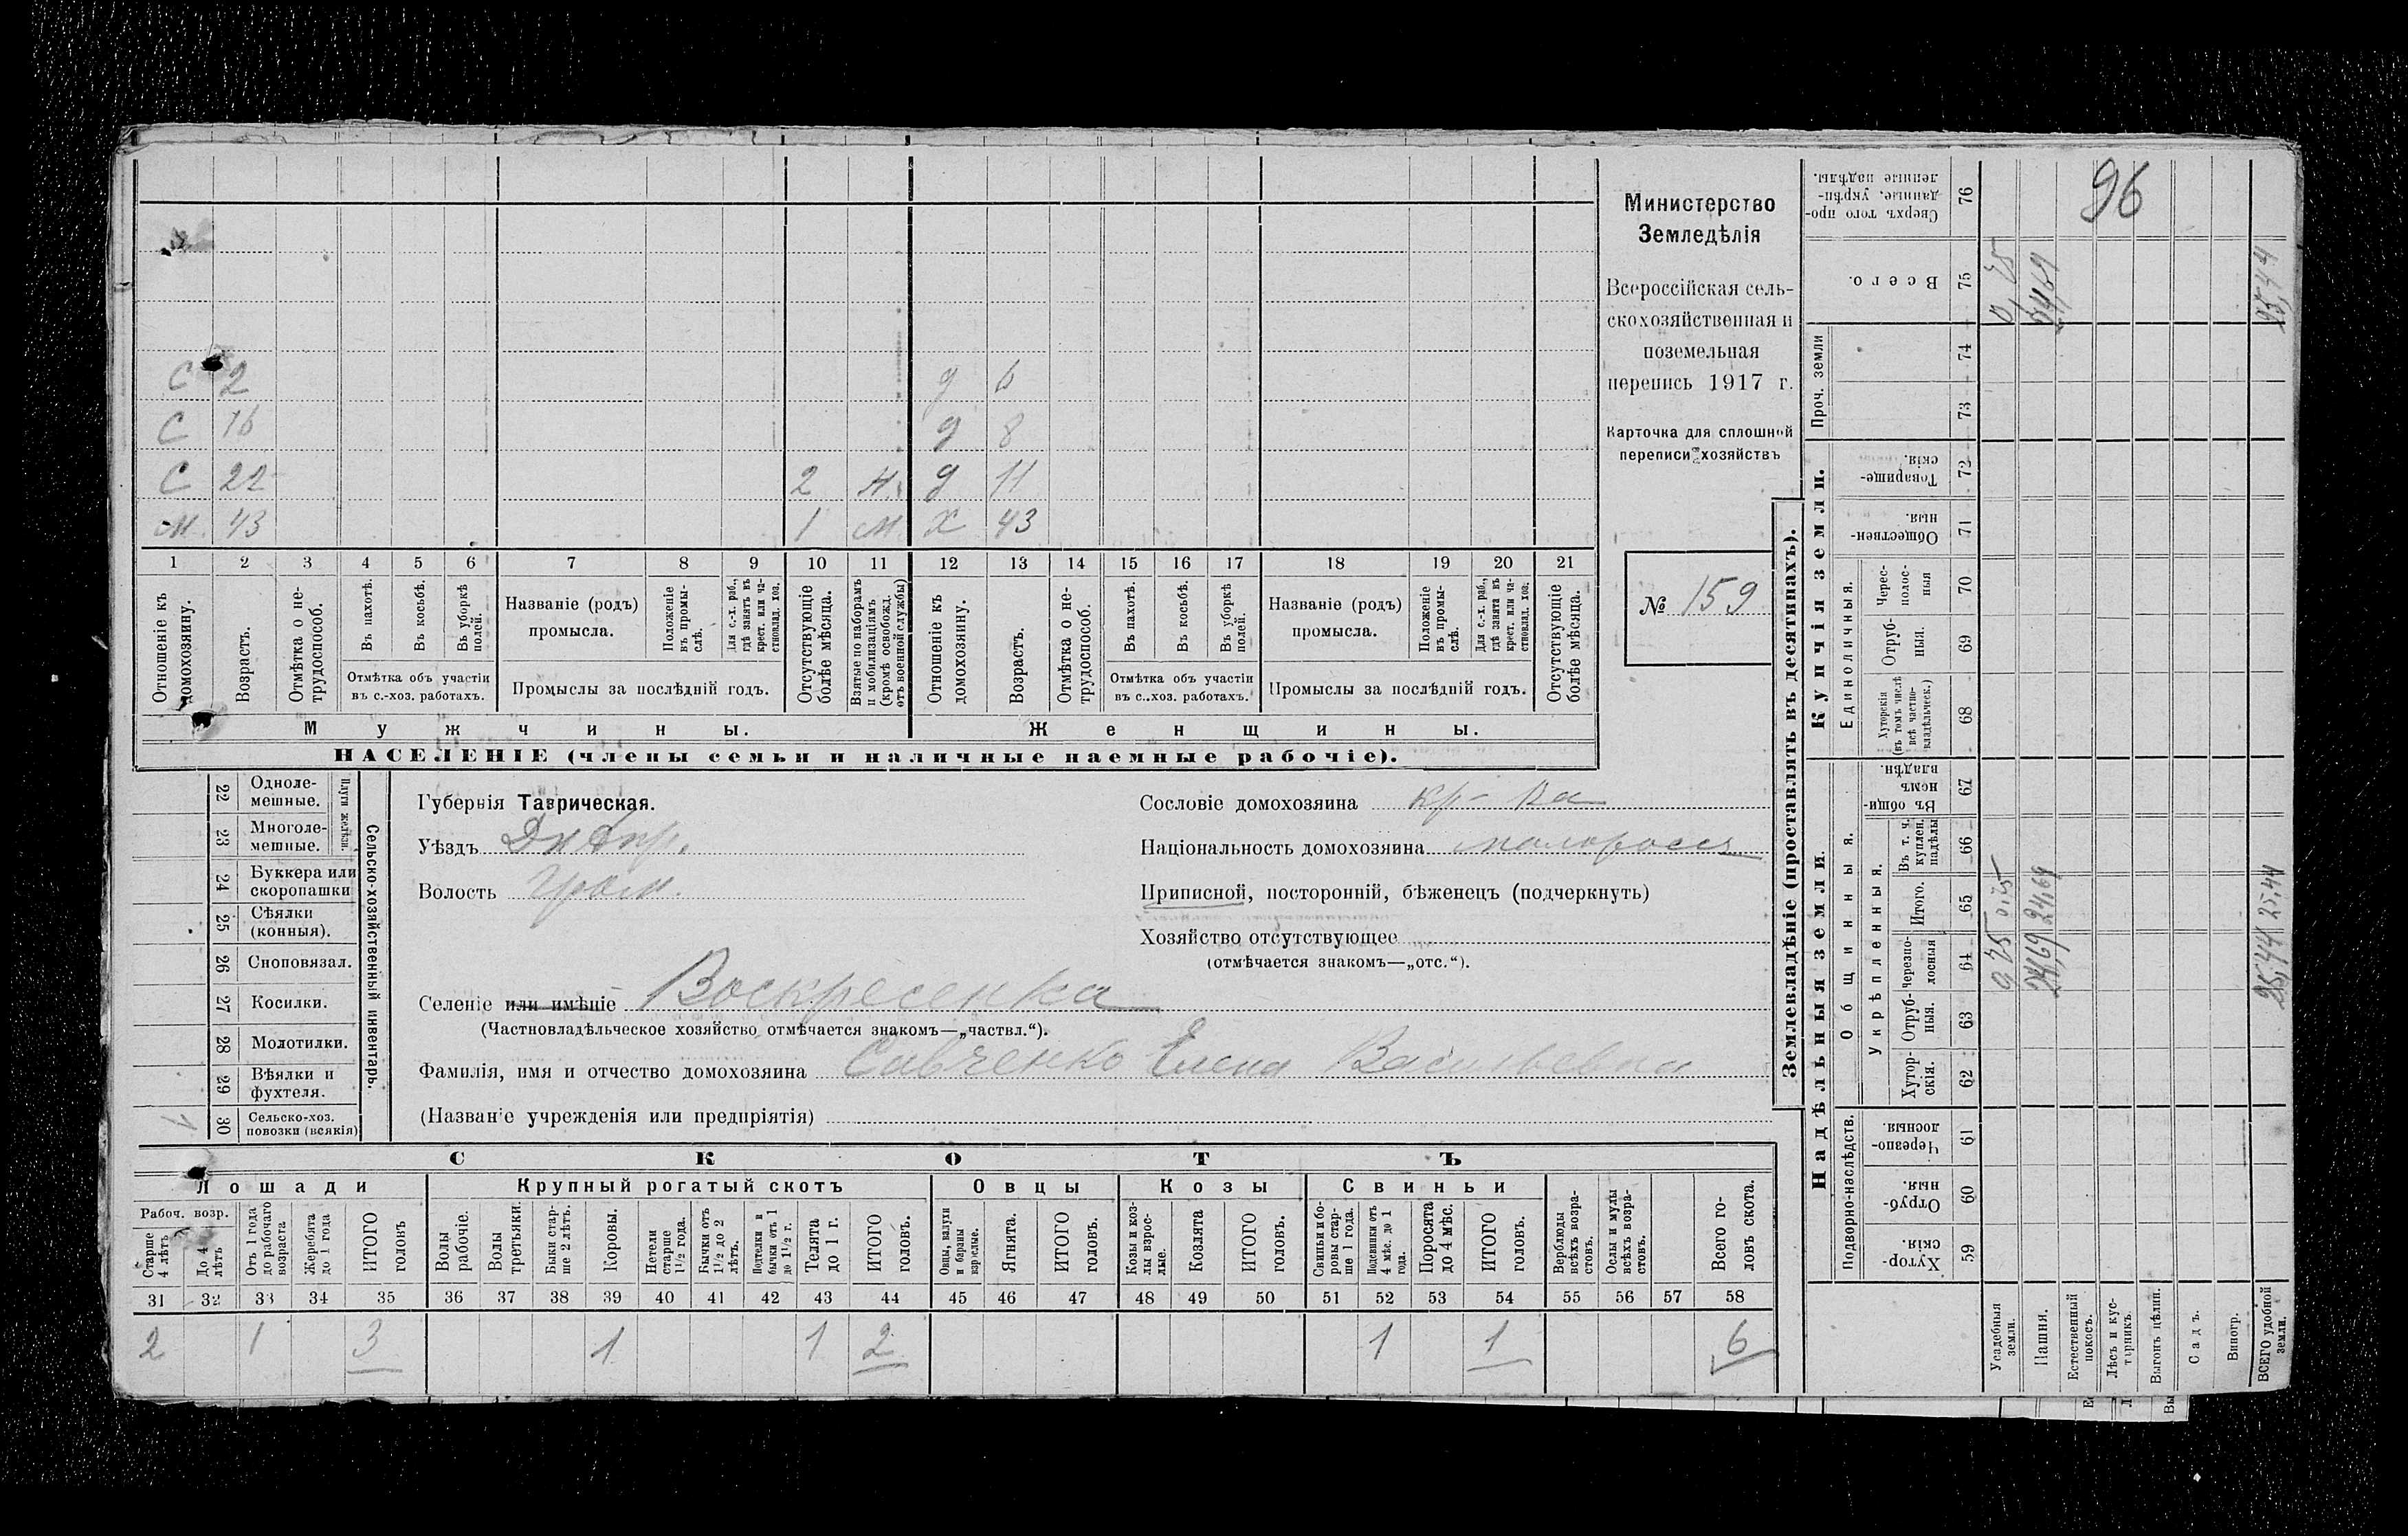 96
С 2 д 6
С 16 д 8
С 22 2 Н. д 11
М. 43 1 М Х 43
1 2 3 4 5 6 7 8 9 10 11 12 13 14 15 16 17 18 19 20 21
Отношеніе къ домохозяину.
Возрастъ.
Отмѣтка о не-
трудоспособ.
Въ пахотѣ.
Въ косьбѣ.
Въ уборкѣ
полей.
Отмѣтка объ участіи
въ с.-хоз. работахъ.
Названіе (родъ)
промысла.
Положеніе
въ промы-
слѣ.
Для с.-х. раб.,
гдѣ занятъ въ
крест. или ча-
стновлад. хоз.
Промыслы за послѣдній годъ.
Отсутствующіе
болѣе мѣсяца.
Взятые по наборамъ
и мобилизаціямъ
(кромѣ освобожд.
отъ военной службы)
Отношеніе къ
домохозяину.
Возрастъ.
Отмѣтка о не-
трудоспособ.
Въ пахотѣ.
Въ косьбѣ.
Въ уборкѣ
полей.
Отмѣтка объ участіи
въ с..хоз. работахъ.
Названіе (родъ)
промысла.
Положеніе
въ промы-
слѣ.
Для с.-х. раб.,
гдѣ занята въ
крест. или ча-
стновлад. хоз.
Промыслы за послѣдній годъ.
Отсутствующіе
болѣе мѣсяца.
Мужчины.
Женщины.
НАСЕЛЕНІЕ (члены семьи и наличные наемные рабочіе).
Министерство
Земледѣлія
Всероссійская сель-
скохозяйственная и
поземельная
перепись 1917 г.
Карточка для сплошной
переписи хозяйствъ
№ 159
22 Одноле-
мешные.
23 Многоле-
мешные.
Плуги желѣзн.
24 Буккера или
скоропашки
25 Сѣялки
(конныя).
26 Сноповязал.
27 Косилки.
28 Молотилки.
29 Вѣялки и
фухтеля.
30 Сельско-хоз.
повозки (всякія)
1
Сельско-хозяйственный инвентарь.
Губернія Таврическая.
Уѣздъ Днѣпр.
Волость
Селеніе или имѣніе Воскресенка
(Частновладѣльческое хозяйство отмѣчается знакомъ—„частвл.“).
Фамилія, имя и отчество домохозяина Савченко Елена Васильевна
(Названіе учрежденія или предпріятія)
Сословіе домохозяина кр-ка
Національность домохозяина малоросс
Приписной, посторонній, бѣженецъ (подчеркнуть)
Хозяйство отсутствующее
(отмѣчается знакомъ—„отс.“).
СКОТЪ
Лошади
Крупный рогатый скотъ
Овцы
Козы
Свиньи
Рабоч. возр.
Старше
4 лѣтъ
До 4
лѣтъ
Отъ 1 года
до рабочаго
возраста
Жеребята
до 1 года
ИТОГО
головъ
Волы
рабочіе.
Волы
третьяки.
Быки стар-
ше 2 лѣтъ.
Коровы.
Нетели
старше
1½ года.
Бычки отъ
1½ до 2
лѣтъ.
Нетелки и
бычки отъ 1
до 1½ г.
Телята
до 1 г.
ИТОГО
головъ.
Овцы, валухи
и бараны
взрослые.
Ягнята.
ИТОГО
головъ.
Козы и коз-
лы взрос-
лые.
Козлята
ИТОГО
головъ.
Свиньи и бо-
ровы стар-
ше 1 года.
Подсвинки отъ
4 мѣс. до 1
года.
Поросята
до 4 мѣс.
ИТОГО
головъ.
Верблюды
всѣхъ возра-
стовъ.
Ослы и мулы
всѣхъ возра-
стовъ.
Всего го-
ловъ скота.
31 32 33 34 35 36 37 38 39 40 41 42 43 44 45 46 47 48 49 50 51 52 53 54 55 56 57 58
2 1 3 1 1 2 1 1 6
Землевладѣніе (проставлять въ десятинахъ).
Купчія земли.
Надѣльныя земли.
Сверхъ того про-
данные, укрѣп-
ленные надѣлы. 76
Всего. 75
Проч. земли 74 73
Товарище-
скія. 72
Обществен-
ныя. 71
Единоличныя.
Черес-
полос-
ныя 70
Отруб-
ныя. 69
Хуторскія
(въ томъ числѣ
всѣ частно-
владѣльческ.) 68
Общинныя.
Въ общи-
нномъ
владѣн. 67
Укрѣпленныя.
Въ т. ч.
куплен.
надѣлы 66
Итого. 65
черезпо-
лосныя 64
Отруб-
ныя. 63
Хутор-
скія. 62
Подворно-наслѣдств.
Черезпо-
лосныя 61
Отруб-
ныя. 60
Хутор-
скія. 59
Усадебныя
земли.
0,75 0,75 0,75
Пашня.
24,69 24,69 24,69
Естественный
покосъ.
Лѣсъ и кус-
тарникъ.
Выгонъ цѣлин.
Садъ.
Виногр.
ВСЕГО удобной
земли.
25,44 25,44 25,44